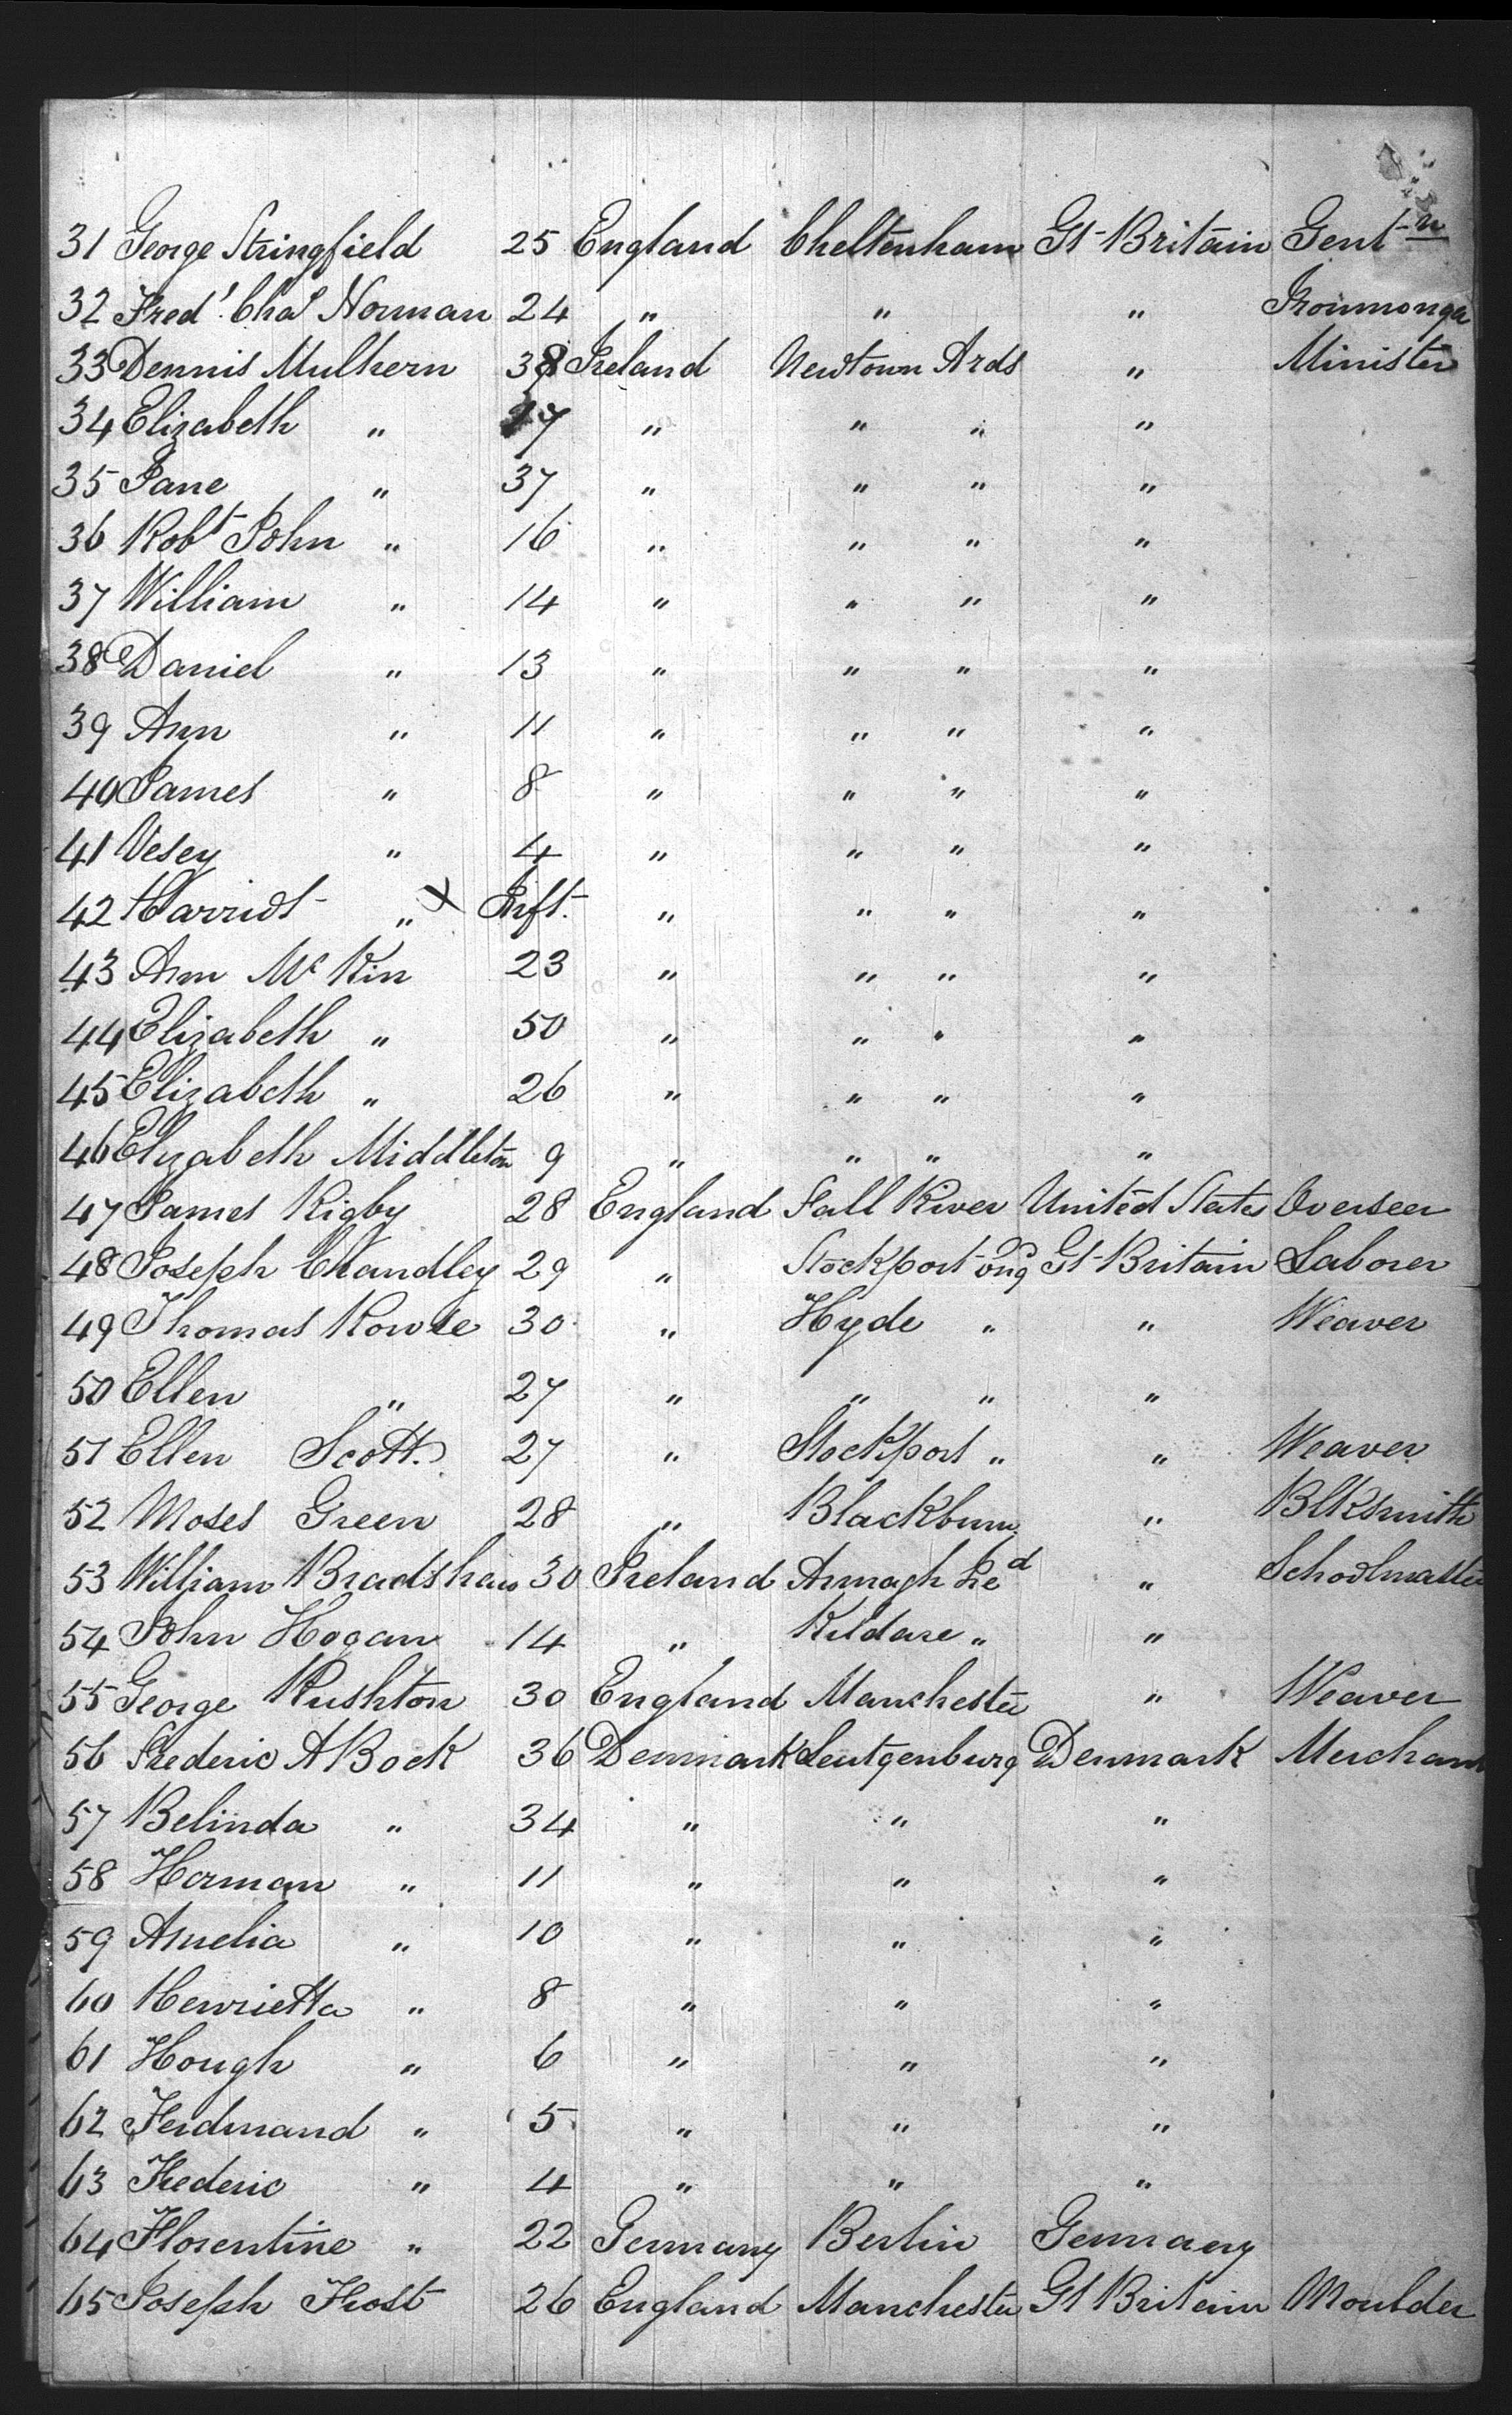 31 George Stringfield 25 England Cheltenham Gt Britain Gentn
32 Fredk Chas Norman 24 " " " Ironmonger
33 Dennis Mulhern 38 Ireland Newtown Ards " Minister
34 Elizabeth " 17 " " " "
35 Jane " 37 " " " "
36 Robt John " 16 " " " "
37 William " 14 " " " "
38 Daniel " 13 " " " "
39 Ann " 11 " " " "
40 James " 8 " " " "
41 Vesey " 4 " " " "
42 Harriot " x Inft. " " " "
43 Ann Mc Kin 23 " " " "
44 Elizabeth " 50 " " " "
45 Elizabeth " 26 " " " "
46 Elizabeth Middleton 9 " " " "
47 James Rigby 28 England Fall River United States Overseer
48 Joseph Chandley 29 " Stockport Eng Gt Britain Laborer
49 Thomas Rowse 30 " Hyde " " Weaver
50 Ellen " 27 " " " "
51 Ellen Scott 27 " Stockport " " Weaver
52 Moses Green 28 " Blackburn " Blksmith
53 William Bradshaw 30 Ireland Armagh Ired " Schoolmaster
54 John Hogan 14 " Kildare " "
55 George Rushton 30 England Manchester " Weaver
56 Frederic A Bock 36 Denmark Leutgenburg Denmark Merchant
57 Belinda " 34 " " "
58 Herman " 11 " " "
59 Amelia " 10 " " "
60 Henrietta " 8 " " "
61 Hough " 6 " " "
62 Ferdinand " 5 " " "
63 Frederic " 4 " " "
64 Florentine " 22 Germany Berlin Germany
65 Joseph Frost 26 England Manchester Gt Britain Moulder